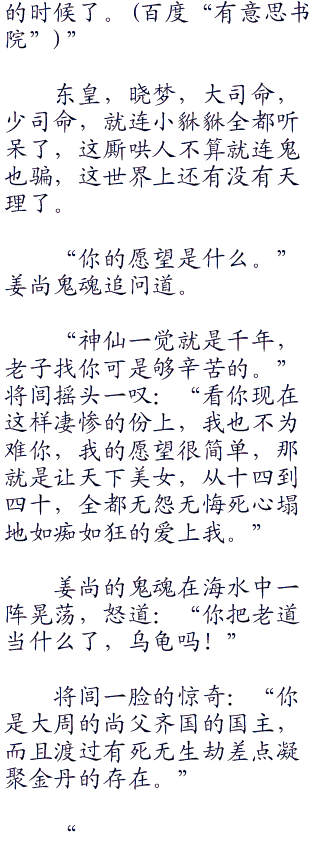 的时候了。(百度“有意思书
院”)”
东皇，晓梦，大司命，
少司命，就连小貅貅全都听
呆了，这厮哄人不算就连鬼
也骗，这世界上还有没有天
理了。
“你的愿望是什么。”
姜尚鬼魂追问道。
“神仙一觉就是千年，
老子找你可是够辛苦的。”
将闾摇头一叹：“看你现在
这样凄惨的份上，我也不为
难你，我的愿望很简单，那
就是让天下美女，从十四到
四十，全都无怨无悔死心塌
地如痴如狂的爱上我。”
姜尚的鬼魂在海水中一
阵晃荡，怒道：“你把老道
当什么了，乌龟吗！”
将闾一脸的惊奇：“你
是大周的尚父齐国的国主，
而且渡过有死无生劫差点凝
聚金丹的存在。”
“